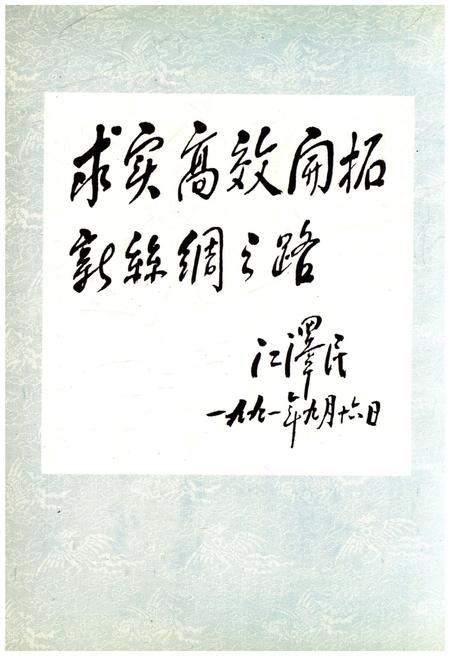 求实高效開拓
新絲綢之路
江澤民
一九九一年九月十六日